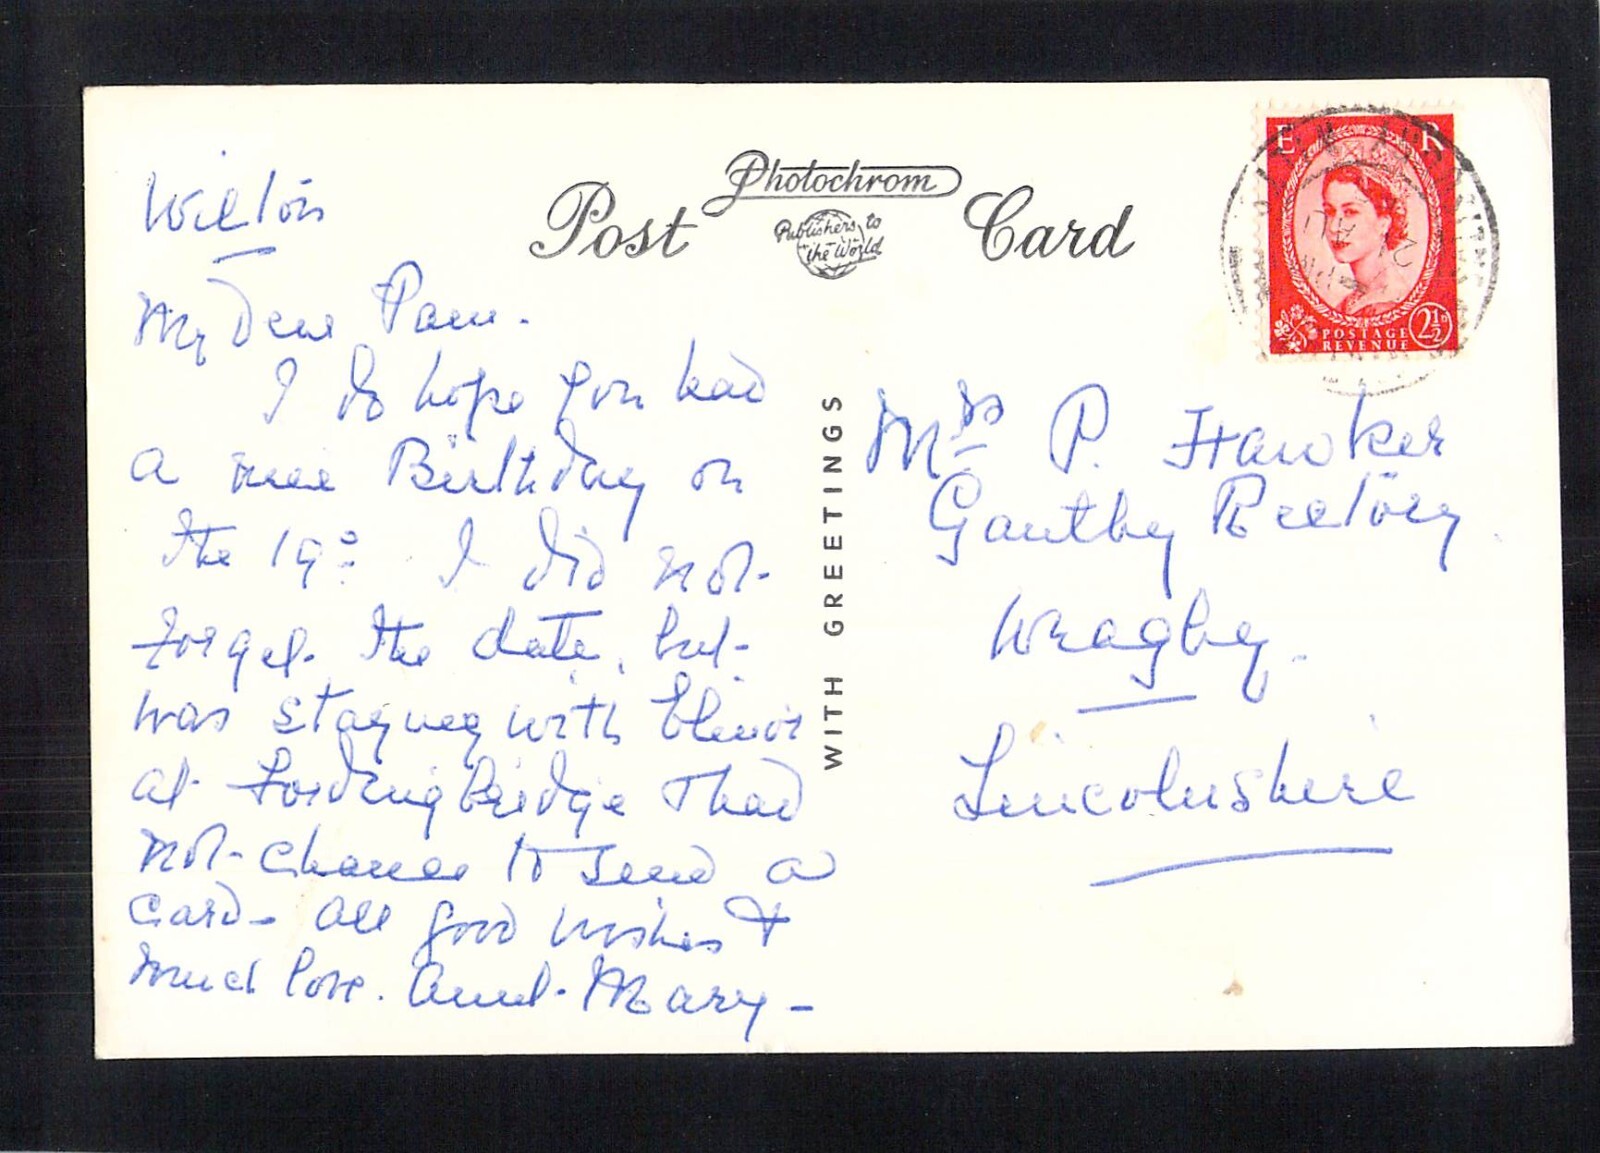 Wilton
My Dear Pam.
I do hope you had
a nice Birthday on
the 19º I did not
forget the date, but
was staying with Elinor
at Fordingbridge & had
not chance to send a
Card - All good wishes &
much love. Aunt Mary -
Photochrom
Post Card
Publishers to
the World
WITH GREETINGS
E R
POSTAGE
REVENUE
2½D
Mrs P. Hawker
Gautby Rectory
Wragby.
Lincolnshire